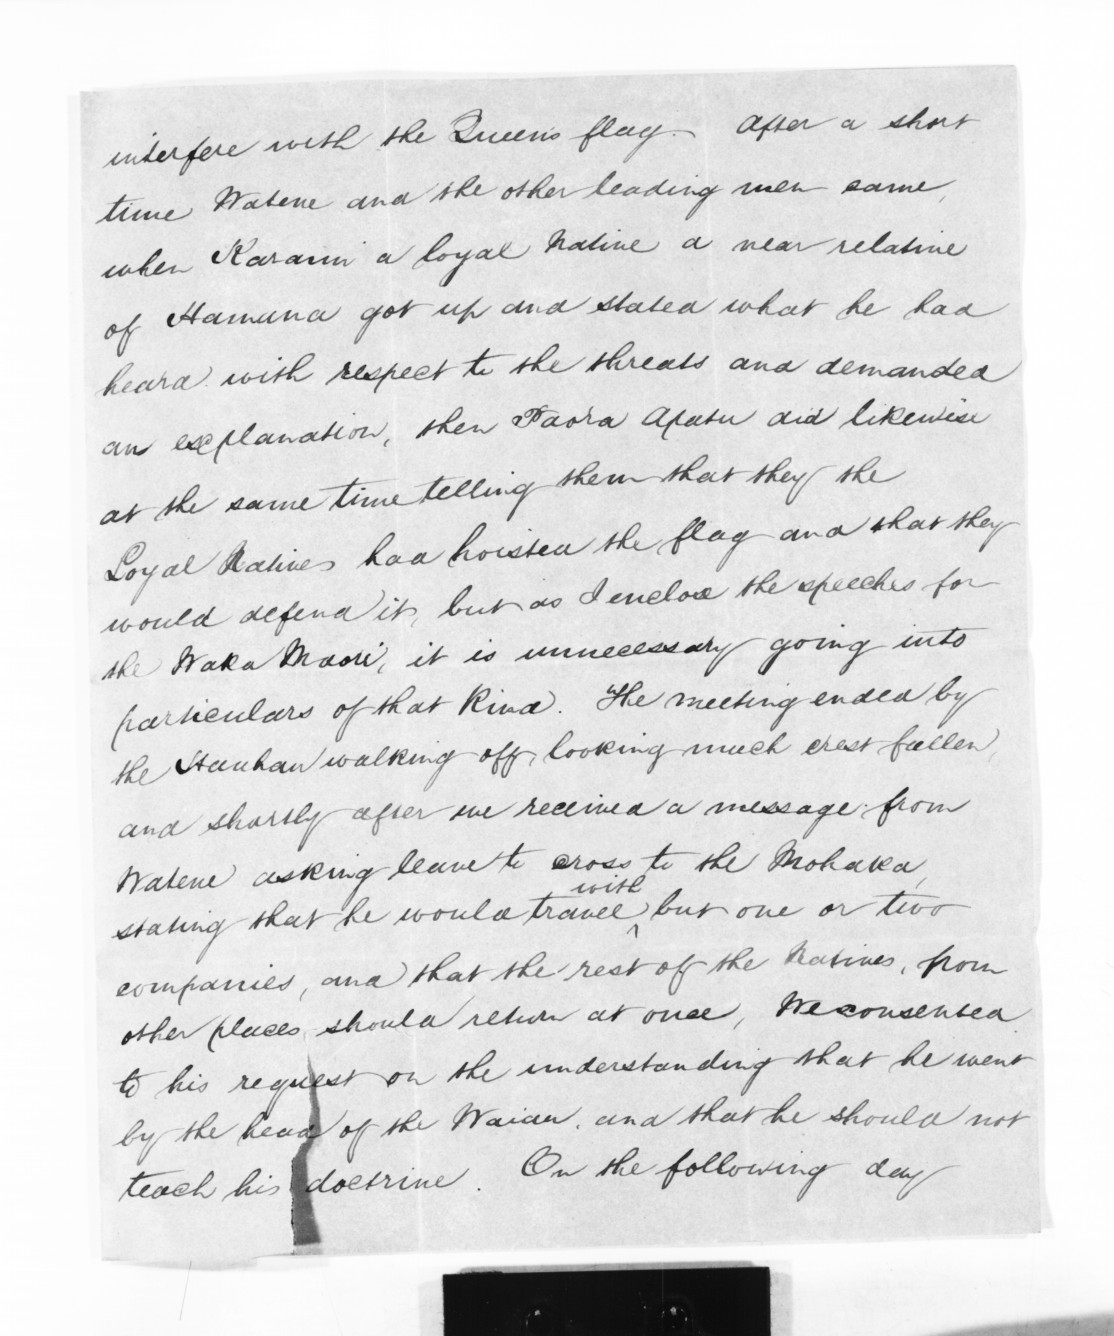 interfere with the Queens flag. After a short
time Watene and the other leading men came,
when Karaini a loyal Native a near relative
of Hamana got up and stated what he had
heard with respect to the threats and demanded
an explanation, then Paora Apatu did likewise
at the same time telling them that they the
Loyal Natives had hoisted the flag and that they
would defend it, but as I enclose the speeches for
the Waka Maori, it is unnecessary going into
particulars of that kind. The meeting ended by
the Hauhau walking off, looking much crest fallen,
and shortly after we received a message from
Watene asking leave to cross to the Mohaka,
stating that he would travel with but one or two
companies, and that the rest of the Natives, from
other places should return at once, We consented
to his request on the understanding that he went
by the head of the Waiau, and that he should not
teach his doctrine. On the following day